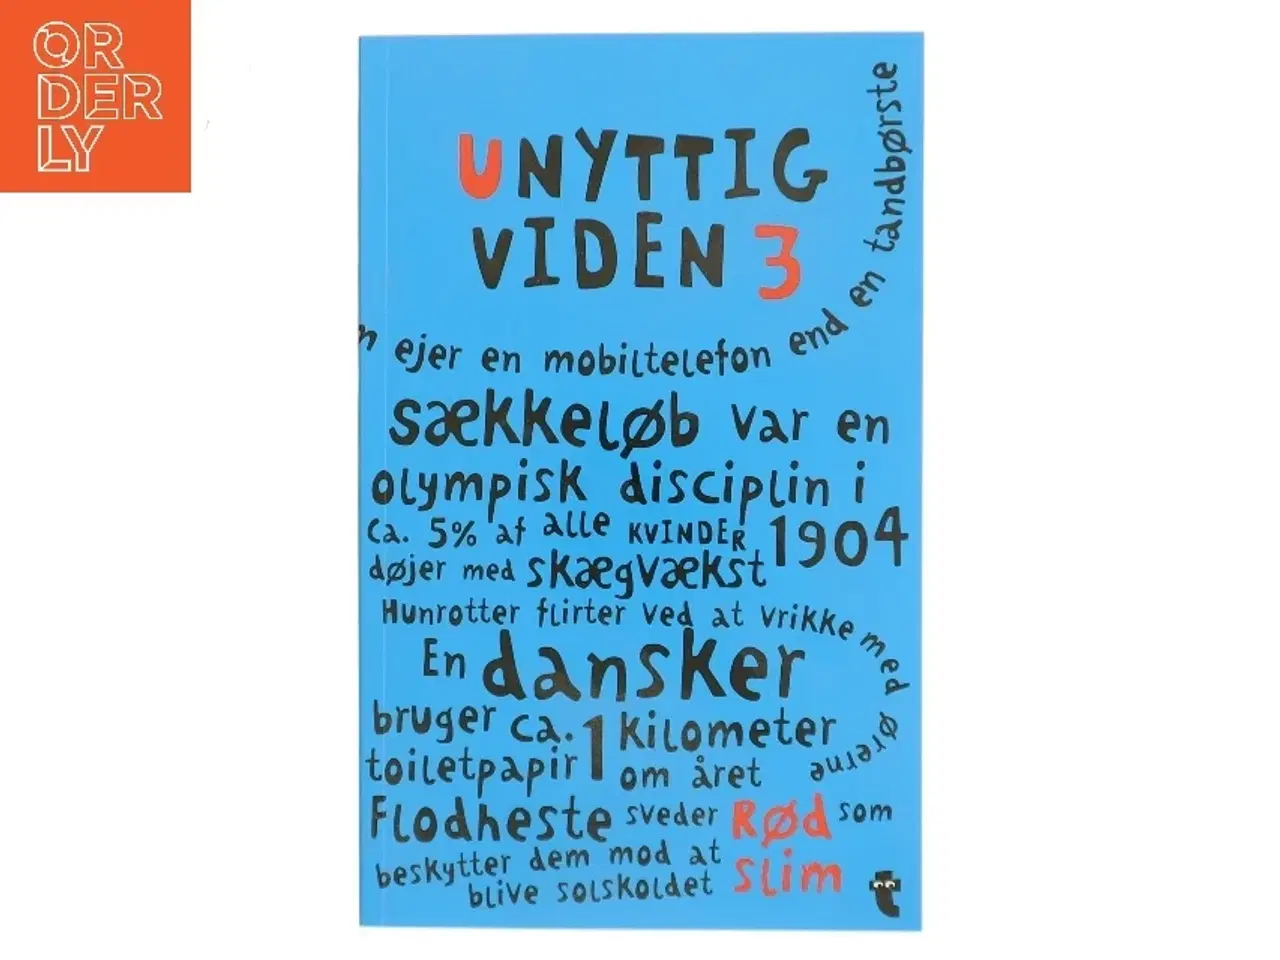 ORDERLY
UNYTTIG
VIDEN 3
n ejer en mobiltelefon end en tandbørste
sækkeløb var en
olympisk disciplin i
1904
Ca. 5% af alle KVINDER
døjer med skægvækst
Hunrotter flirter ved at vrikke med ørerne
En dansker
bruger ca. 1 kilometer
toiletpapir om året
Flodheste sveder Rød slim som
beskytter dem mod at
blive solskoldet
t